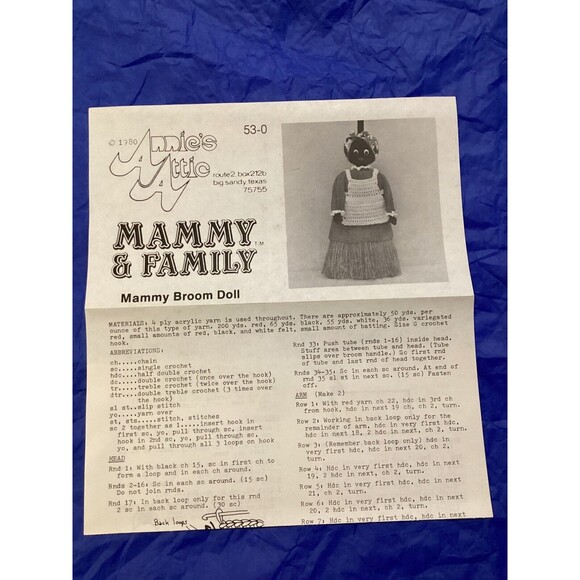 © 1980 Annie's Attic
53-0
route 2, box 212b
big sandy, texas
75755
MAMMY & FAMILY™
Mammy Broom Doll
MATERIALS: 4 ply acrylic yarn is used throughout. There are approximately 50 yds. per
ounce of this type of yarn, 200 yds. red, 65 yds. black, 55 yds. white, 36 yds. variegated
red, small amounts of red, black, and white felt, small amount of batting. Size G crochet
hook.
ABBREVIATIONS:
ch.....chain
sc.....single crochet
hdc....half double crochet
dc.....double crochet (once over the hook)
tr.....treble crochet (twice over the hook)
dtr....double treble crochet (3 times over
the hook)
sl st..slip stitch
yo.....yarn over
st, sts.....stitch, stitches
sc 2 together as 1.....insert hook in
first sc, yo, pull through sc, insert
hook in 2nd sc, yo, pull through sc,
yo, and pull through all 3 loops on hook
HEAD
Rnd 1: With black ch 15, sc in first ch to
form a loop and in each ch around.
Rnds 2-16: Sc in each sc around. (15 sc)
Do not join rnds.
Rnd 17: In back loop only for this rnd
2 sc in each sc around. (30 sc)
Back loops
Rnd 33: Push tube (rnds 1-16) inside head.
Stuff area between tube and head. (Tube
slips over broom handle.) Sc first rnd
of tube and last rnd of head together.
Rnds 34-35: Sc in each sc around. At end of
rnd 35 sl st in next sc. (15 sc) Fasten
off.
ARM (Make 2)
Row 1: With red yarn ch 22, hdc in 3rd ch
from hook, hdc in next 19 ch, ch 2, turn.
Row 2: Working in back loop only for the
remainder of arm, hdc in very first hdc,
hdc in next 18, 2 hdc in next, ch 2, turn.
Row 3: (Remember back loop only) hdc in
very first hdc, hdc in next 20, ch 2,
turn.
Row 4: Hdc in very first hdc, hdc in next
19, 2 hdc in next, ch 2, turn.
Row 5: Hdc in very first hdc, hdc in next
21, ch 2, turn.
Row 6: Hdc in very first hdc, hdc in next
20, 2 hdc in next, ch 2, turn.
Row 7: Hdc in very first hdc, hdc in next